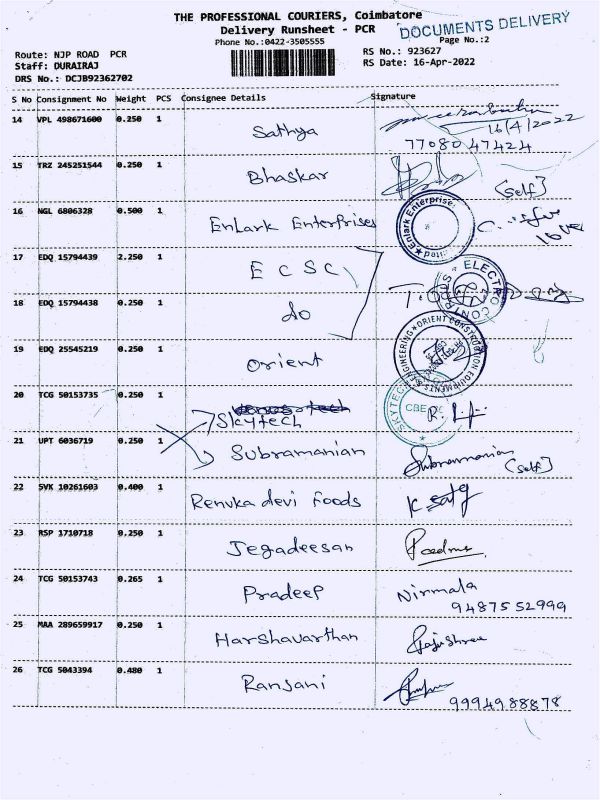 THE PROFESSIONAL COURIERS, Coimbatore
Delivery Runsheet - PCR
DOCUMENTS DELIVERY
Phone No.:0422-3505555
Page No.:2
Route: NJP ROAD PCR
RS No.: 923627
Staff: DURAIRAJ
RS Date: 16-Apr-2022
DRS No.: DCJB92362702
S No Consignment No Weight PCS Consignee Details Signature
14 VPL 498671600 0.250 1 Sathya
16/4/2022
77080 47424
15 TRZ 245251544 0.250 1 Bhaskar [Self]
16 NGL 6806328 0.500 1 Enlark Enterprises
Enlark Enterprise
17 EDQ 15794439 2.250 1 E C S C
ELECTRO CON
18 EDQ 15794438 0.250 1 do
19 EDQ 25545219 0.250 1 Orient
ENGINEERING ORIENT CONSTRUCTION EQUIPMENTS
20 TCG 50153735 0.250 1 Skytech
SKYTEC
CBE
21 UPT 6036719 0.250 1 Subramanian Subramanian
[Self]
22 SVK 10261603 0.400 1 Renuka devi Foods
23 RSP 1710718 0.250 1 Jegadeesan
24 TCG 50153743 0.265 1 Pradeep Nirmala
94875 52999
25 MAA 289659917 0.250 1 Harshavarthan Rajishree
26 TCG 5043394 0.480 1 Ranjani
9994988878